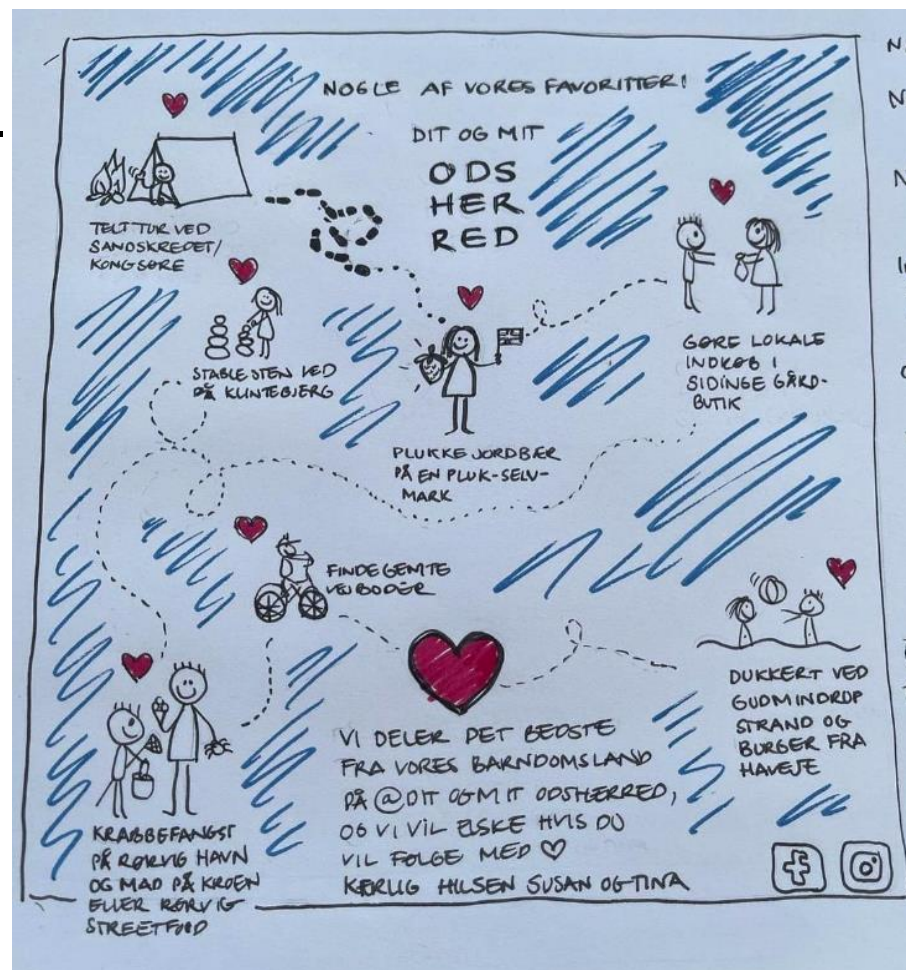 NOGLE AF VORES FAVORITTER!
DIT OG MIT
ODS
HER
RED
TELTTUR VED
SANDSKREDET/
KONGSØRE
STABLE STEN VED
PÅ KLINTEBJERG
PLUKKE JORDBÆR
PÅ EN PLUK-SELV-
MARK
GØRE LOKALE
INDKØB I
SIDINGE GÅRD-
BUTIK
FINDE GEMTE
VEJBODER
DUKKERT VED
GUDMINDRUP
STRAND OG
BURGER FRA
HAVEJE
KRABBEFANGST
PÅ RØRVIG HAVN
OG MAD PÅ KROEN
ELLER RØRVIG
STREETFOOD
VI DELER DET BEDSTE
FRA VORES BARNDOMSLAND
PÅ @DIT OG MIT ODSHERRED,
OG VI VIL ELSKE HVIS DU
VIL FØLGE MED ♡
KÆRLIG HILSEN SUSAN OG TINA